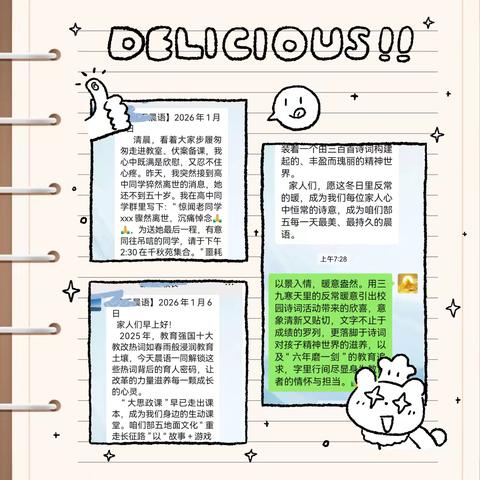 DELICIOUS!!
晨语】2026年1月
日
清晨，看着大家步履匆
匆走进教室、伏案备课，我
心中既满是欣慰，又忍不住
心疼。昨天，我突然接到高
中同学猝然离世的消息，她
还不到五十岁。我在高中同
学群里写下：“惊闻老同学
xxx骤然离世，沉痛悼念🙏
🙏，为送她最后一程，有意
同往吊唁的同学，请于下午
2:30在千秋苑集合。”噩耗
晨语】2026年1月6
日
家人们早上好！
2025年，教育强国十大
教改热词如春雨般浸润教育
土壤，今天晨语一同解锁这
些热词背后的育人密码，让
改革的力量滋养每一颗成长
的心灵。
“大思政课”早已走出课
本，成为我们身边的生动课
堂。咱们郜五地面文化“重
走长征路”以“故事+游戏
装着一个由三百首诗词构建
起的、丰盈而瑰丽的精神世
界。
家人们，愿这冬日里反常
的暖，成为我们每位家人心
中恒常的诗意，成为咱们郜
五每一天最美、最持久的晨
语。
上午7:28
以景入情，暖意盎然。用三
九寒天里的反常暖意引出校
园诗词活动带来的欣喜，意
象清新又贴切，文字不止于
成绩的罗列，更落脚于诗词
对孩子精神世界的滋养，以
及“六年磨一剑”的教育追
求，字里行间尽显身为教
者的情怀与担当。